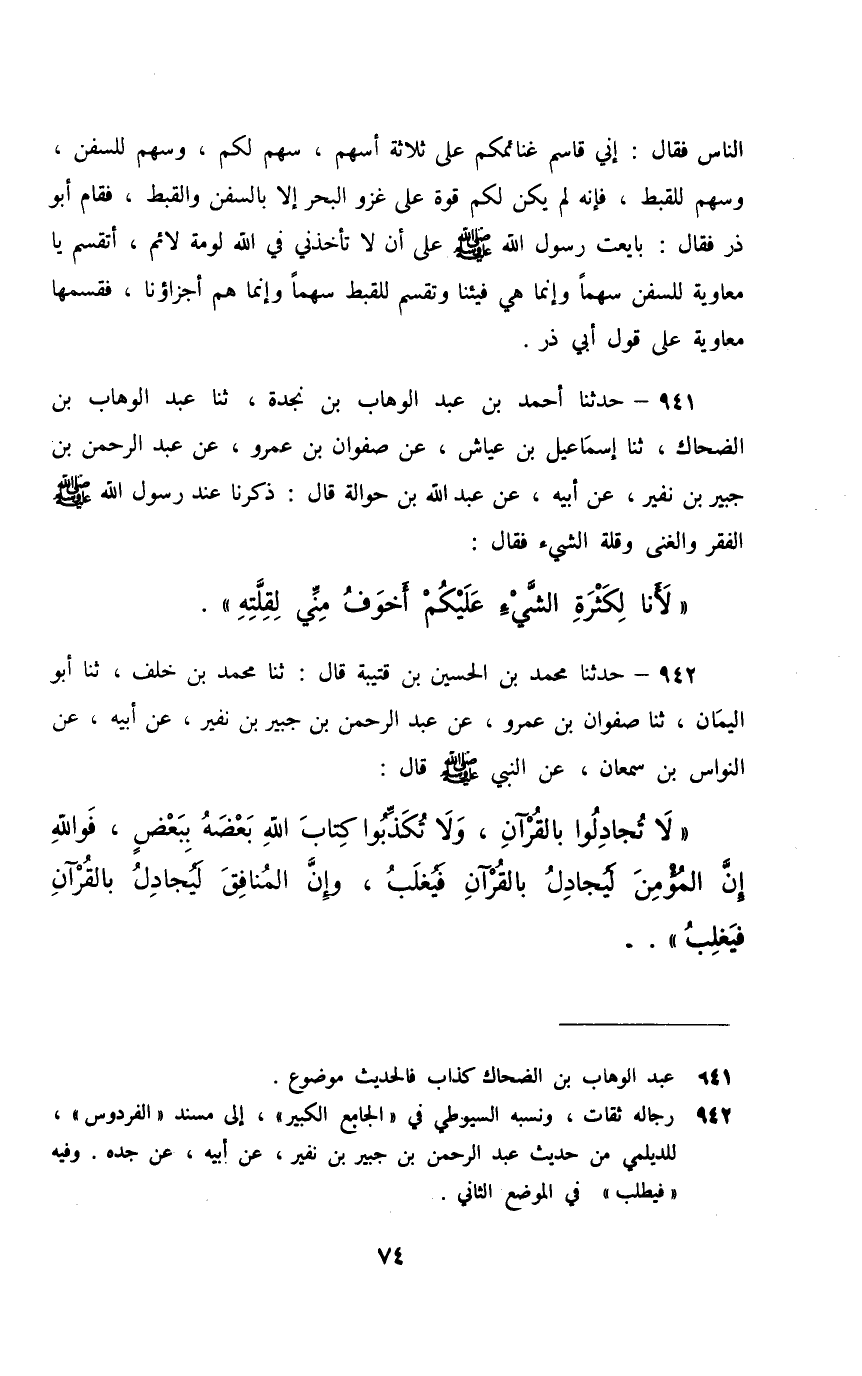 الناس فقال : إني قاسم غنائمكم على ثلاثة أسهم ، سهم لكم ، وسهم للسفن ،
وسهم للقبط ، فإنه لم يكن لكم قوة على غزو البحر إلا بالسفن والقبط ، فقام أبو
ذر فقال : بايعت رسول الله ﷺ على أن لا تأخذني في الله لومة لائم ، أتقسم يا
معاوية للسفن سهماً وإنما هي فيئنا وتقسم للقبط سهماً وإنما هم أجزاؤنا ، فقسمها
معاوية على قول أبي ذر .
٩٤١ – حدثنا أحمد بن عبد الوهاب بن نجدة ، ثنا عبد الوهاب بن
الضحاك ، ثنا إسماعيل بن عياش ، عن صفوان بن عمرو ، عن عبد الرحمن بن
جبير بن نفير ، عن أبيه ، عن عبد الله بن حوالة قال : ذكرنا عند رسول الله ﷺ
الفقر والغنى وقلة الشيء فقال :
« لَأَنا لِكَثْرَةِ الشَّيْءِ عَلَيْكُمْ أَخوَفُ مِنِّي لِقِلَّتِهِ » .
٩٤٢ – حدثنا محمد بن الحسين بن قتيبة قال : ثنا محمد بن خلف ، ثنا أبو
اليمان ، ثنا صفوان بن عمرو ، عن عبد الرحمن بن جبير بن نفير ، عن أبيه ، عن
النواس بن سمعان ، عن النبي ﷺ قال :
« لَا تُجادِلُوا بالقُرْآنِ ، وَلَا تُكَذِّبُوا كِتابَ اللهِ بَعْضَهُ بِبَعْضٍ ، فَواللهِ
إِنَّ المُؤْمِنَ لَيُجادِلُ بالقُرْآنِ فَيُغلَبُ ، وإِنَّ المُنافِقَ لَيُجادِلُ بالقُرْآنِ
فيَغلِبُ » . .
٩٤١ عبد الوهاب بن الضحاك كذاب فالحديث موضوع .
٩٤٢ رجاله ثقات ، ونسبه السيوطي في «الجامع الكبير» ، إلى مسند «الفردوس» ،
للديلمي من حديث عبد الرحمن بن جبير بن نفير ، عن أبيه ، عن جده . وفيه
«فيطلب» في الموضع الثاني .
٧٤